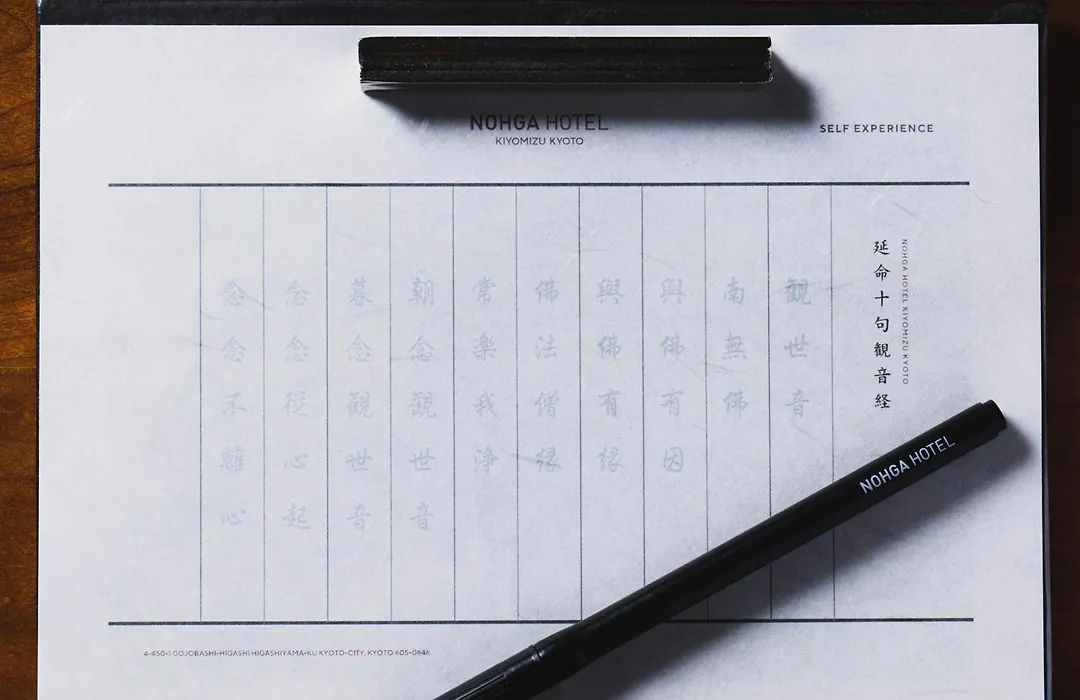 NOHGA HOTEL
KIYOMIZU KYOTO
SELF EXPERIENCE
NOHGA HOTEL KIYOMIZU KYOTO
延命十句観音経
観世音
南無佛
與佛有因
與佛有縁
佛法僧縁
常楽我浄
朝念観世音
暮念観世音
念念従心起
念念不離心
NOHGA HOTEL
4-450-1 GOJOBASHI-HIGASHI HIGASHIYAMA-KU KYOTO-CITY, KYOTO 605-0846